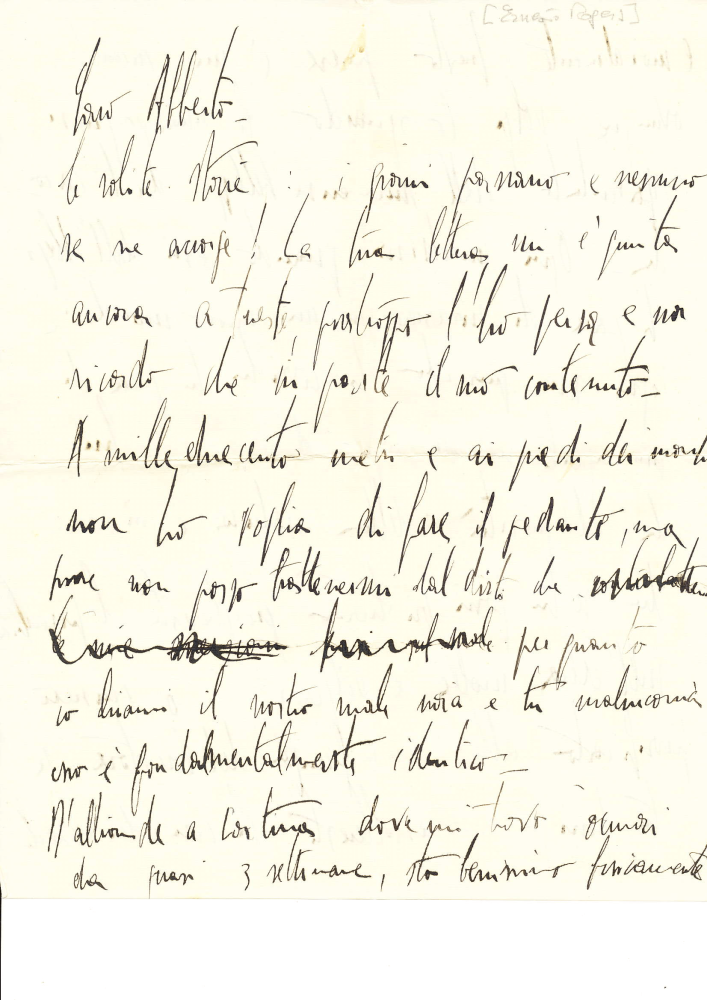 [Ernesto Rogers]
Caro Alberto –
le solite storie : i giorni passano e nessuno
se ne accorge! La tua lettera mi è giunta
ancora a Trieste, purtroppo l'ho persa e non
ricordo che in parte il suo contenuto –
A milleduecento metri e ai piedi dei monti
non ho voglia di fare il pedante, ma
pure non posso trattenermi dal dirti che
le mie per quanto
io chiami il nostro male noia e tu malinconia
esso è fondalmentalmente identico –
D'altronde a Cortina dove mi trovo ormai
da quasi 3 settimane, sto benissimo fisicamente